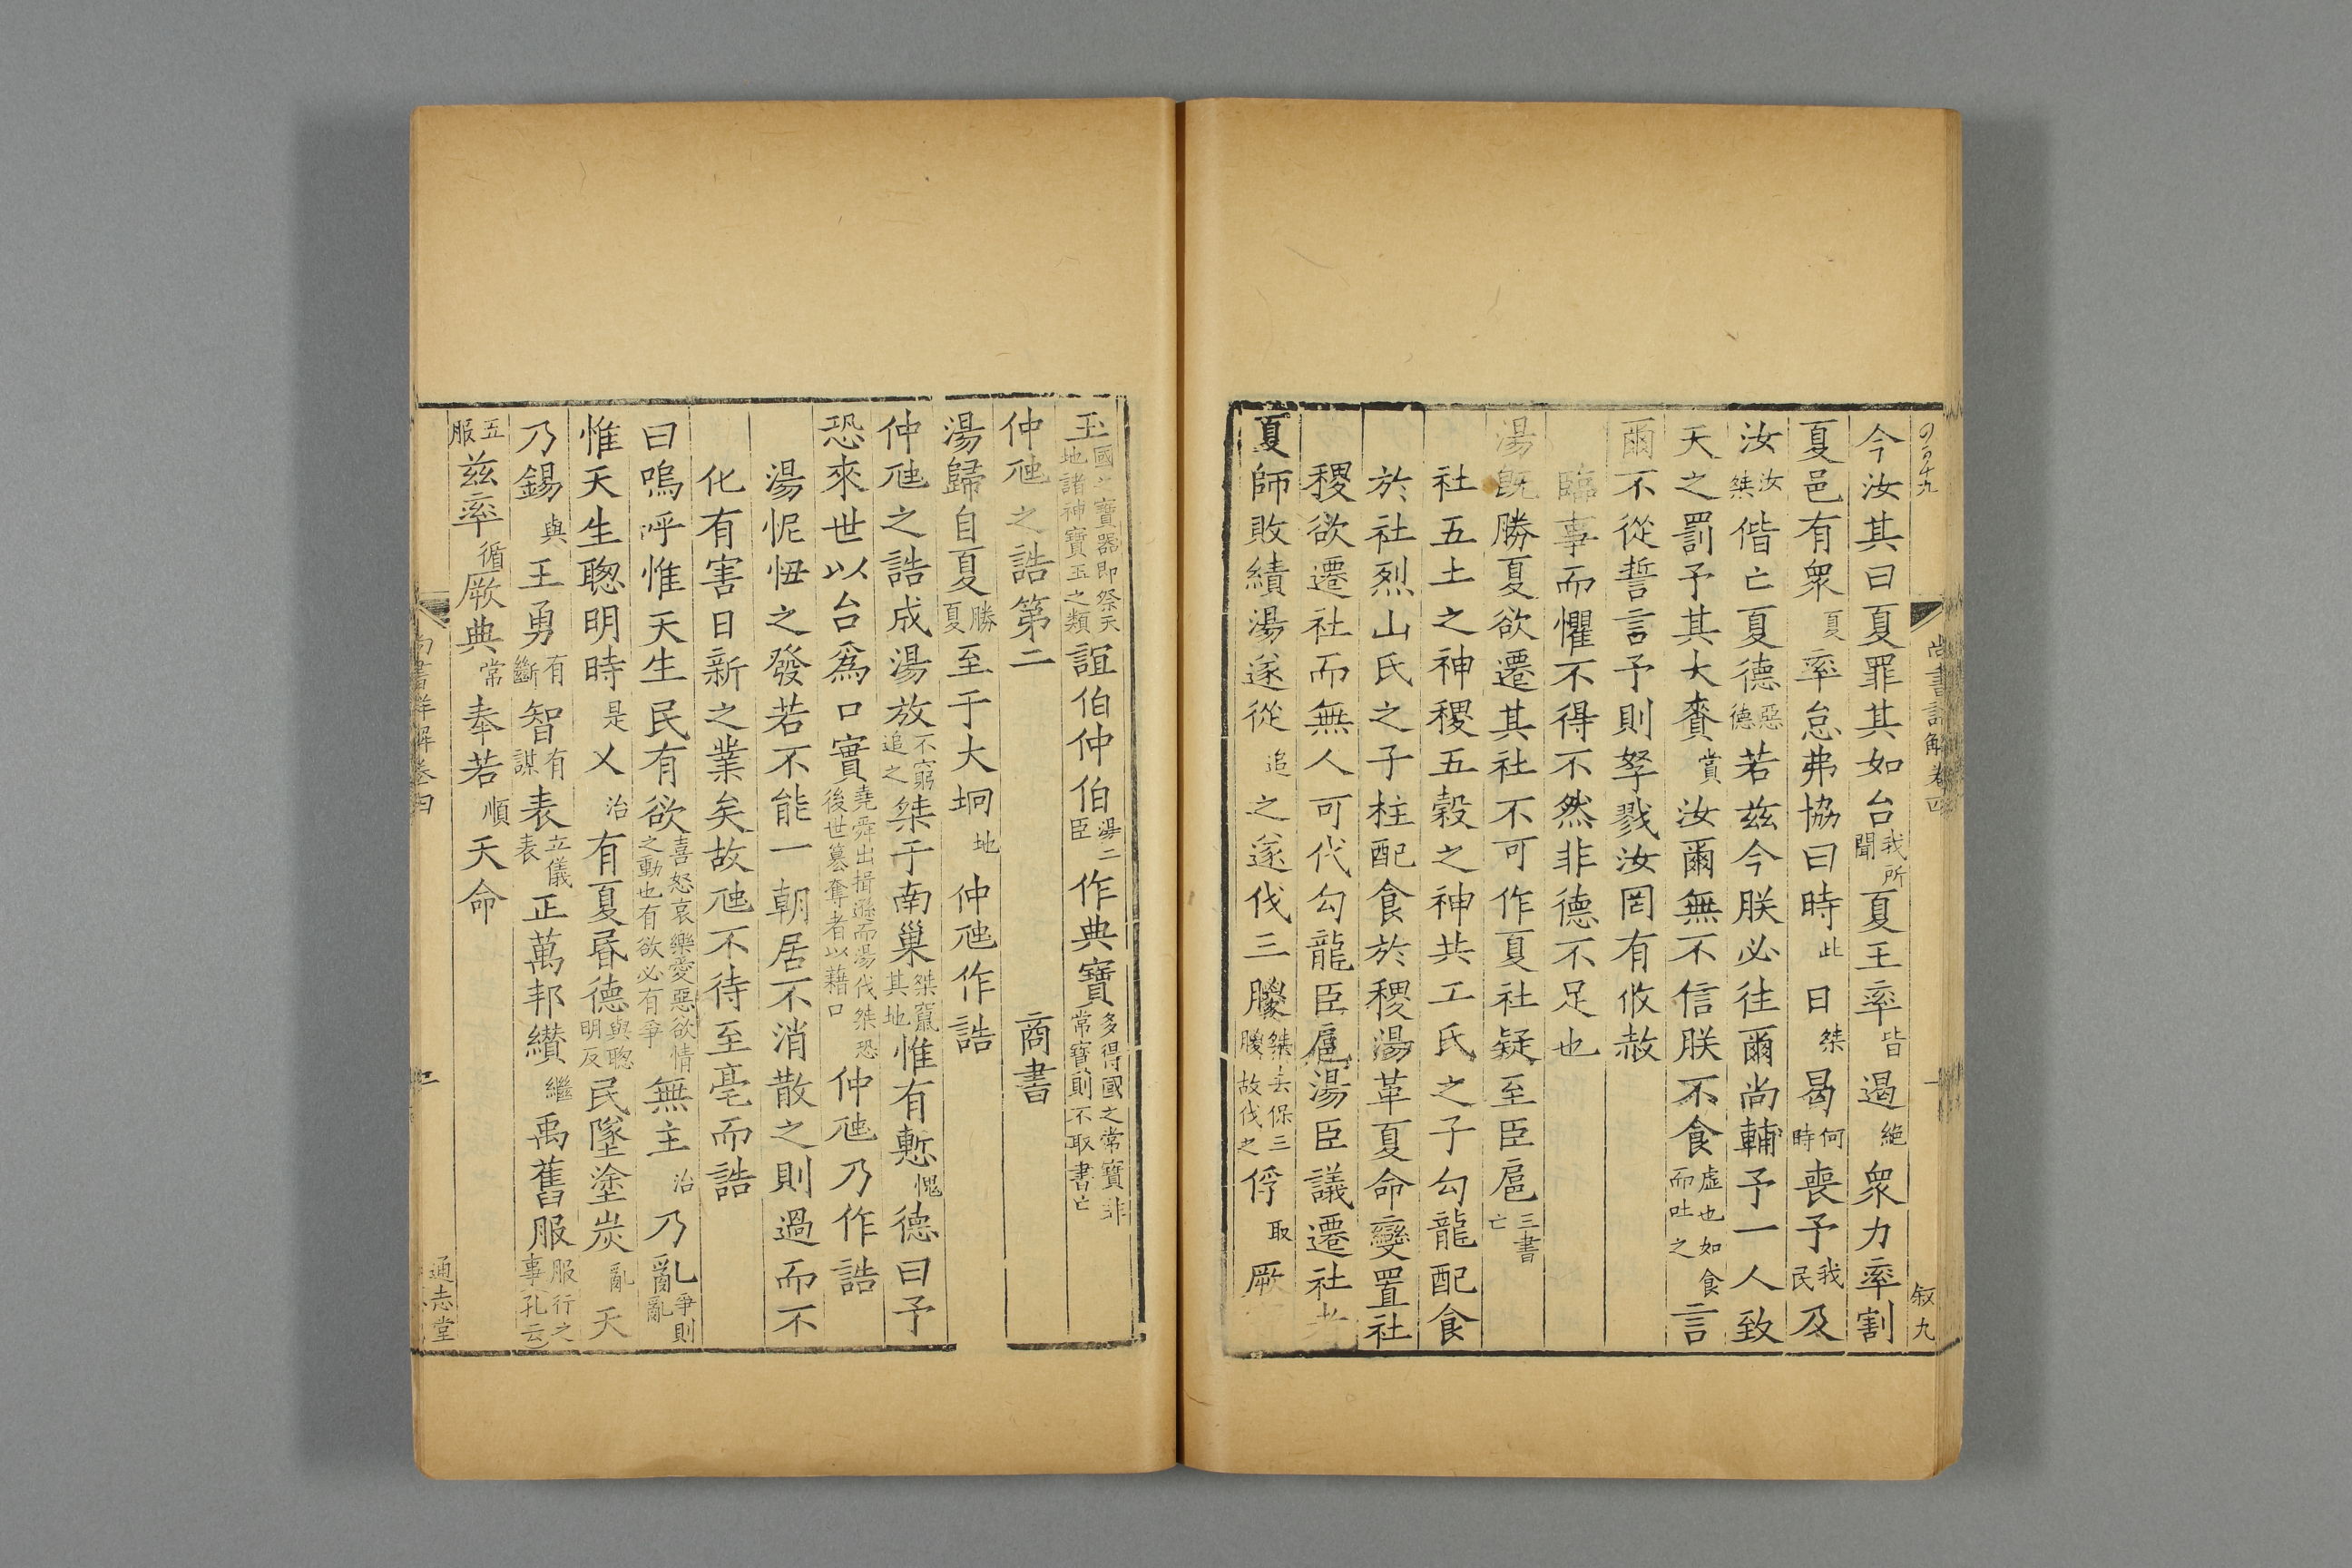 今汝其曰夏罪其如台我所聞夏王率皆遏絶衆力率割
夏邑有衆夏率怠弗協曰時此日桀曷何時喪予我民及
汝汝桀偕亡夏德惡德若兹今朕必往爾尚輔予一人致
天之罰予其大賚賞汝爾無不信朕不食虛也如食而吐之言
爾不從誓言予則孥戮汝罔有攸赦
臨事而懼不得不然非德不足也
湯旣勝夏欲遷其社不可作夏社疑至臣扈三書亡
社五土之神稷五榖之神共工氏之子勾龍配食
於社烈山氏之子柱配食於稷湯革夏命變置社
稷欲遷社而無人可代勾龍臣扈湯臣議遷社者
夏師敗績湯遂從追之遂伐三朡桀去保三朡故伐之俘取厥
叙九
玉國之寶器即祭天地諸神寶玉之類誼伯仲伯湯二臣作典寶多得國之常寶非常寶則不取書亡
仲虺之誥第二 商書
湯歸自夏勝夏至于大坰地仲虺作誥
仲虺之誥成湯放不窮追之桀于南巢桀竄其地惟有慙愧德曰予
恐來世以台爲口實堯舜出揖遜而湯伐桀恐後世簒奪者以藉口仲虺乃作誥
湯怩忸之發若不能一朝居不消散之則過而不
化有害日新之業矣故虺不待至亳而誥
曰嗚呼惟天生民有欲喜怒哀樂愛惡欲情之動也有欲必有爭無主治乃亂爭則亂
惟天生聦明時是乂治有夏昬德與聦明反民墜塗炭亂天
乃錫與王勇有斷智有謀表立儀表正萬邦纉繼禹舊服服行之事孔云
五服兹率循厥典常奉若順天命
通志堂